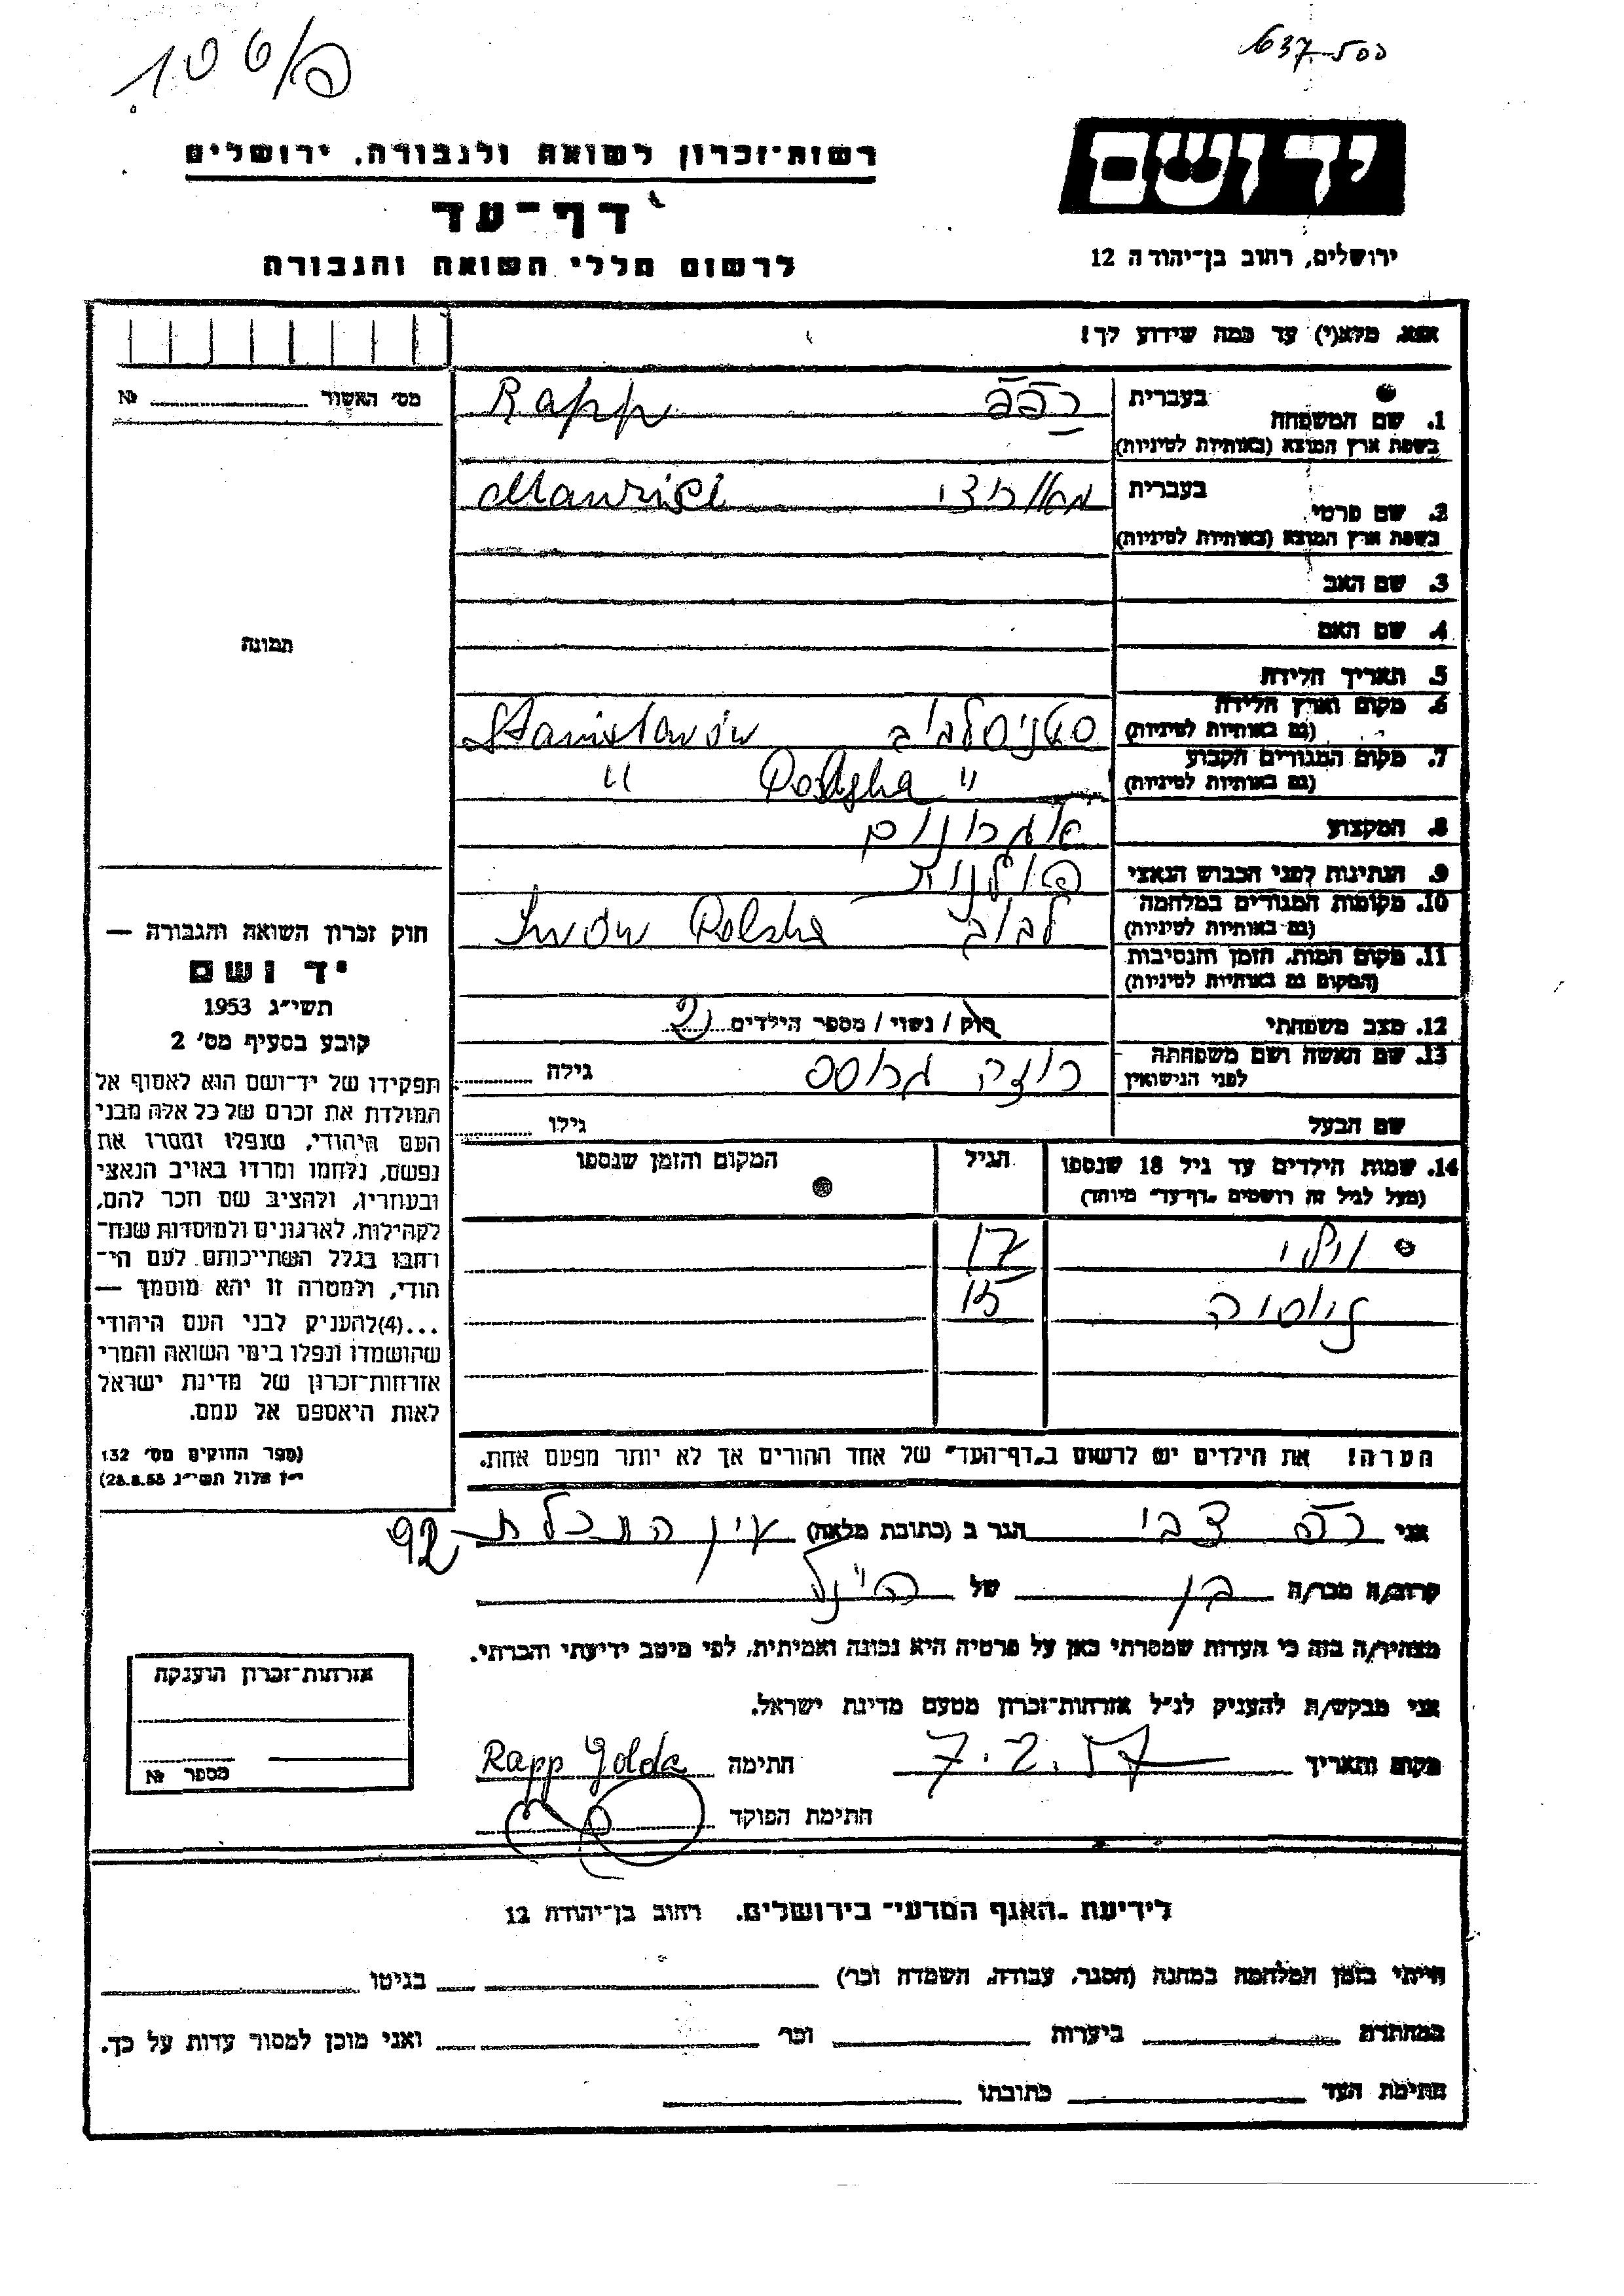 637-500
רשות-זכרון לשואה ולגבורה, ירושלים
יד ושם
דף-עד
ירושלים, רחוב בן-יהודה 12
לרשום חללי השואה והגבורה
אנא, מלא(י) עד כמה שידוע לך!
מס׳ האשור № 
בעברית רפפ Rapp
1. שם המשפחה
בשפת ארץ המוצא (באותיות לטיניות)
בעברית Maurici
2. שם פרטי
בשפת ארץ המוצא (באותיות לטיניות)
3. שם האב
4. שם האם
תמונה
5. תאריך הלידה
6. מקום וארץ הלידה סטניסלבוב Stanisławów
(גם באותיות לטיניות)
7. מקום המגורים הקבוע " Polsha "
(גם באותיות לטיניות)
8. המקצוע אגרונום
9. הנתינות לפני הכבוש הנאצי פולנית
10. מקומות המגורים במלחמה לבוב Lwów Polsha
(גם באותיות לטיניות)
11. מקום המות, הזמן והנסיבות
(המקום גם באותיות לטיניות)
12. מצב משפחתי רווק / נשוי / מספר הילדים 2
13. שם האשה ושם משפחתה רוזה גרוס גילה
לפני הנישואין
שם הבעל גילו
14. שמות הילדים עד גיל 18 שנספו הגיל המקום והזמן שנספו
(מעל לגיל זה רושמים "דף-עד" מיוחד)
וילי 17
15
הערה! את הילדים יש לרשום ב"דף-העד" של אחד ההורים אך לא יותר מפעם אחת.
חוק זכרון השואה והגבורה —
יד ושם
תשי"ג 1953
קובע בסעיף מס׳ 2
תפקידו של יד-ושם הוא לאסוף אל
המולדת את זכרם של כל אלה מבני
העם היהודי, שנפלו ומסרו את
נפשם, נלחמו ומרדו באויב הנאצי
ובעוזריו, ולהציב שם וזכר להם,
לקהילות, לארגונים ולמוסדות שנח-
רבו בגלל השתייכותם לעם הי-
הודי, ולמטרה זו יהא מוסמך —
...(4)להעניק לבני העם היהודי
שהושמדו ונפלו בימי השואה והמרי
אזרחות-זכרון של מדינת ישראל
לאות היאספם אל עמם.
(ספר החוקים מס׳ 132
י"ז אלול תשי"ג 28.8.53)
אני רפ צבי הגר ב (כתובת מלאה) עין התכלת 92
קרוב/ה מכר/ה בן של
מצהיר/ה בזה כי העדות שמסרתי כאן על פרטיה היא נכונה ואמיתית, לפי מיטב ידיעתי והכרתי.
אני מבקש/ת להעניק לנ"ל אזרחות-זכרון מטעם מדינת ישראל.
מקום ותאריך 7.2.57 חתימה Rapp Golda
חתימת הפוקד
אזרחות-זכרון הוענקה
מספר №
לידיעת "האגף המדעי" בירושלים, רחוב בן-יהודה 12
הייתי בזמן המלחמה במחנה (הסגר, עבודה, השמדה וכו׳) בגיטו
במחתרת ביערות וכו׳ ואני מוכן למסור עדות על כך.
חתימת העד כתובתו